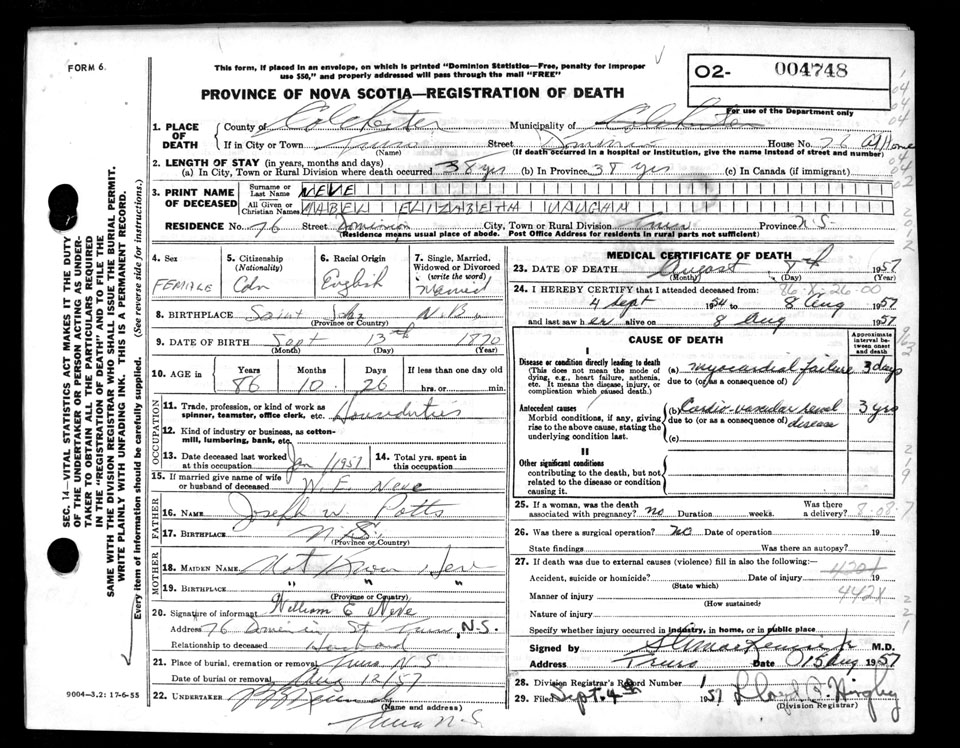 FORM 6.
This form, if placed in an envelope, on which is printed "Dominion Statistics—Free, penalty for improper
use $50," and properly addressed will pass through the mail "FREE"
02- 004748
For use of the Department only
PROVINCE OF NOVA SCOTIA—REGISTRATION OF DEATH
1. PLACE OF DEATH
County of Colchester Municipality of Colchester
If in City or Town Truro Street Dominion House No. 76 At Home
(Name) (If death occurred in a hospital or institution, give the name instead of street and number)
2. LENGTH OF STAY (in years, months and days)
(a) In City, Town or Rural Division where death occurred 38 yrs (b) In Province 38 yrs (c) In Canada (if immigrant)
3. PRINT NAME OF DECEASED
Surname or Last Name NEVE
All Given or Christian Names MABEL ELIZABETH VAUGHAN
RESIDENCE No. 76 Street Dominion City, Town or Rural Division Truro Province N.S-
(Residence means usual place of abode. Post Office Address for residents in rural parts not sufficient)
4. Sex
FEMALE
5. Citizenship
(Nationality)
Cdn
6. Racial Origin
English
7. Single, Married,
Widowed or Divorced
(write the word)
Married
8. BIRTHPLACE Saint John N.B.
(Province or Country)
9. DATE OF BIRTH Sept 13th 1870
(Month) (Day) (Year)
10. AGE in
Years Months Days If less than one day old
86 10 26 hrs. or min.
OCCUPATION
11. Trade, profession, or kind of work as
spinner, teamster, office clerk, etc. Houseduties
12. Kind of industry or business, as cotton-
mill, lumbering, bank, etc.
13. Date deceased last worked
at this occupation Jan/1957
14. Total yrs. spent in
this occupation
15. If married give name of wife
or husband of deceased W. E. Neve
FATHER
16. NAME Joseph W Potts
17. BIRTHPLACE N.S.
(Province or Country)
MOTHER
18. MAIDEN NAME Not Known Here
19. BIRTHPLACE " " "
(Province or Country)
20. Signature of informant William E Neve
Address 76 Dominion St Truro, N.S.
Relationship to deceased Husband
21. Place of burial, cremation or removal Truro N.S
Date of burial or removal Aug 12/57
22. UNDERTAKER
(Name and address)
Truro N.S.
9004—3.2: 17-6-55
MEDICAL CERTIFICATE OF DEATH
23. DATE OF DEATH August 8th 1957
(Month) (Day) (Year)
24. I HEREBY CERTIFY that I attended deceased from: 86-X-26-00
4 Sept 1954 to 8 Aug 1957
and last saw her alive on 8 Aug 1957
CAUSE OF DEATH
Approximate
interval be-
tween onset
and death
I
Disease or condition directly leading to death
(This does not mean the mode of
dying, e.g., heart failure, asthenia,
etc. It means the disease, injury, or
complication which caused death.)
(a) myocardial failure 3 days
due to (or as a consequence of)
Antecedent causes
Morbid conditions, if any, giving
rise to the above cause, stating the
underlying condition last.
(b) Cardio-vascular renal 3 yrs
due to (or as a consequence of) disease
(c)
II
Other significant conditions
contributing to the death, but not
related to the disease or condition
causing it.
25. If a woman, was the death
associated with pregnancy? no Duration weeks. Was there
a delivery?
26. Was there a surgical operation? NO Date of operation 19
State findings Was there an autopsy?
27. If death was due to external causes (violence) fill in also the following:
Accident, suicide or homicide? Date of injury 19
(State which)
Manner of injury 442X
(How sustained)
Nature of injury
Specify whether injury occurred in industry, in home, or in public place
Signed by M.D.
Address Truro Date 15 Aug 1957
28. Division Registrar's Record Number
29. Filed Sept. 4th 1957
(Division Registrar)
SEC. 14—VITAL STATISTICS ACT MAKES IT THE DUTY
OF THE UNDERTAKER OR PERSON ACTING AS UNDER-
TAKER TO OBTAIN ALL THE PARTICULARS REQUIRED
IN THE "REGISTRATION OF DEATH" AND TO FILE THE
SAME WITH THE DIVISION REGISTRAR WHO SHALL ISSUE THE BURIAL PERMIT.
WRITE PLAINLY WITH UNFADING INK. THIS IS A PERMANENT RECORD.
Every item of information should be carefully supplied. (See reverse side for instructions.)